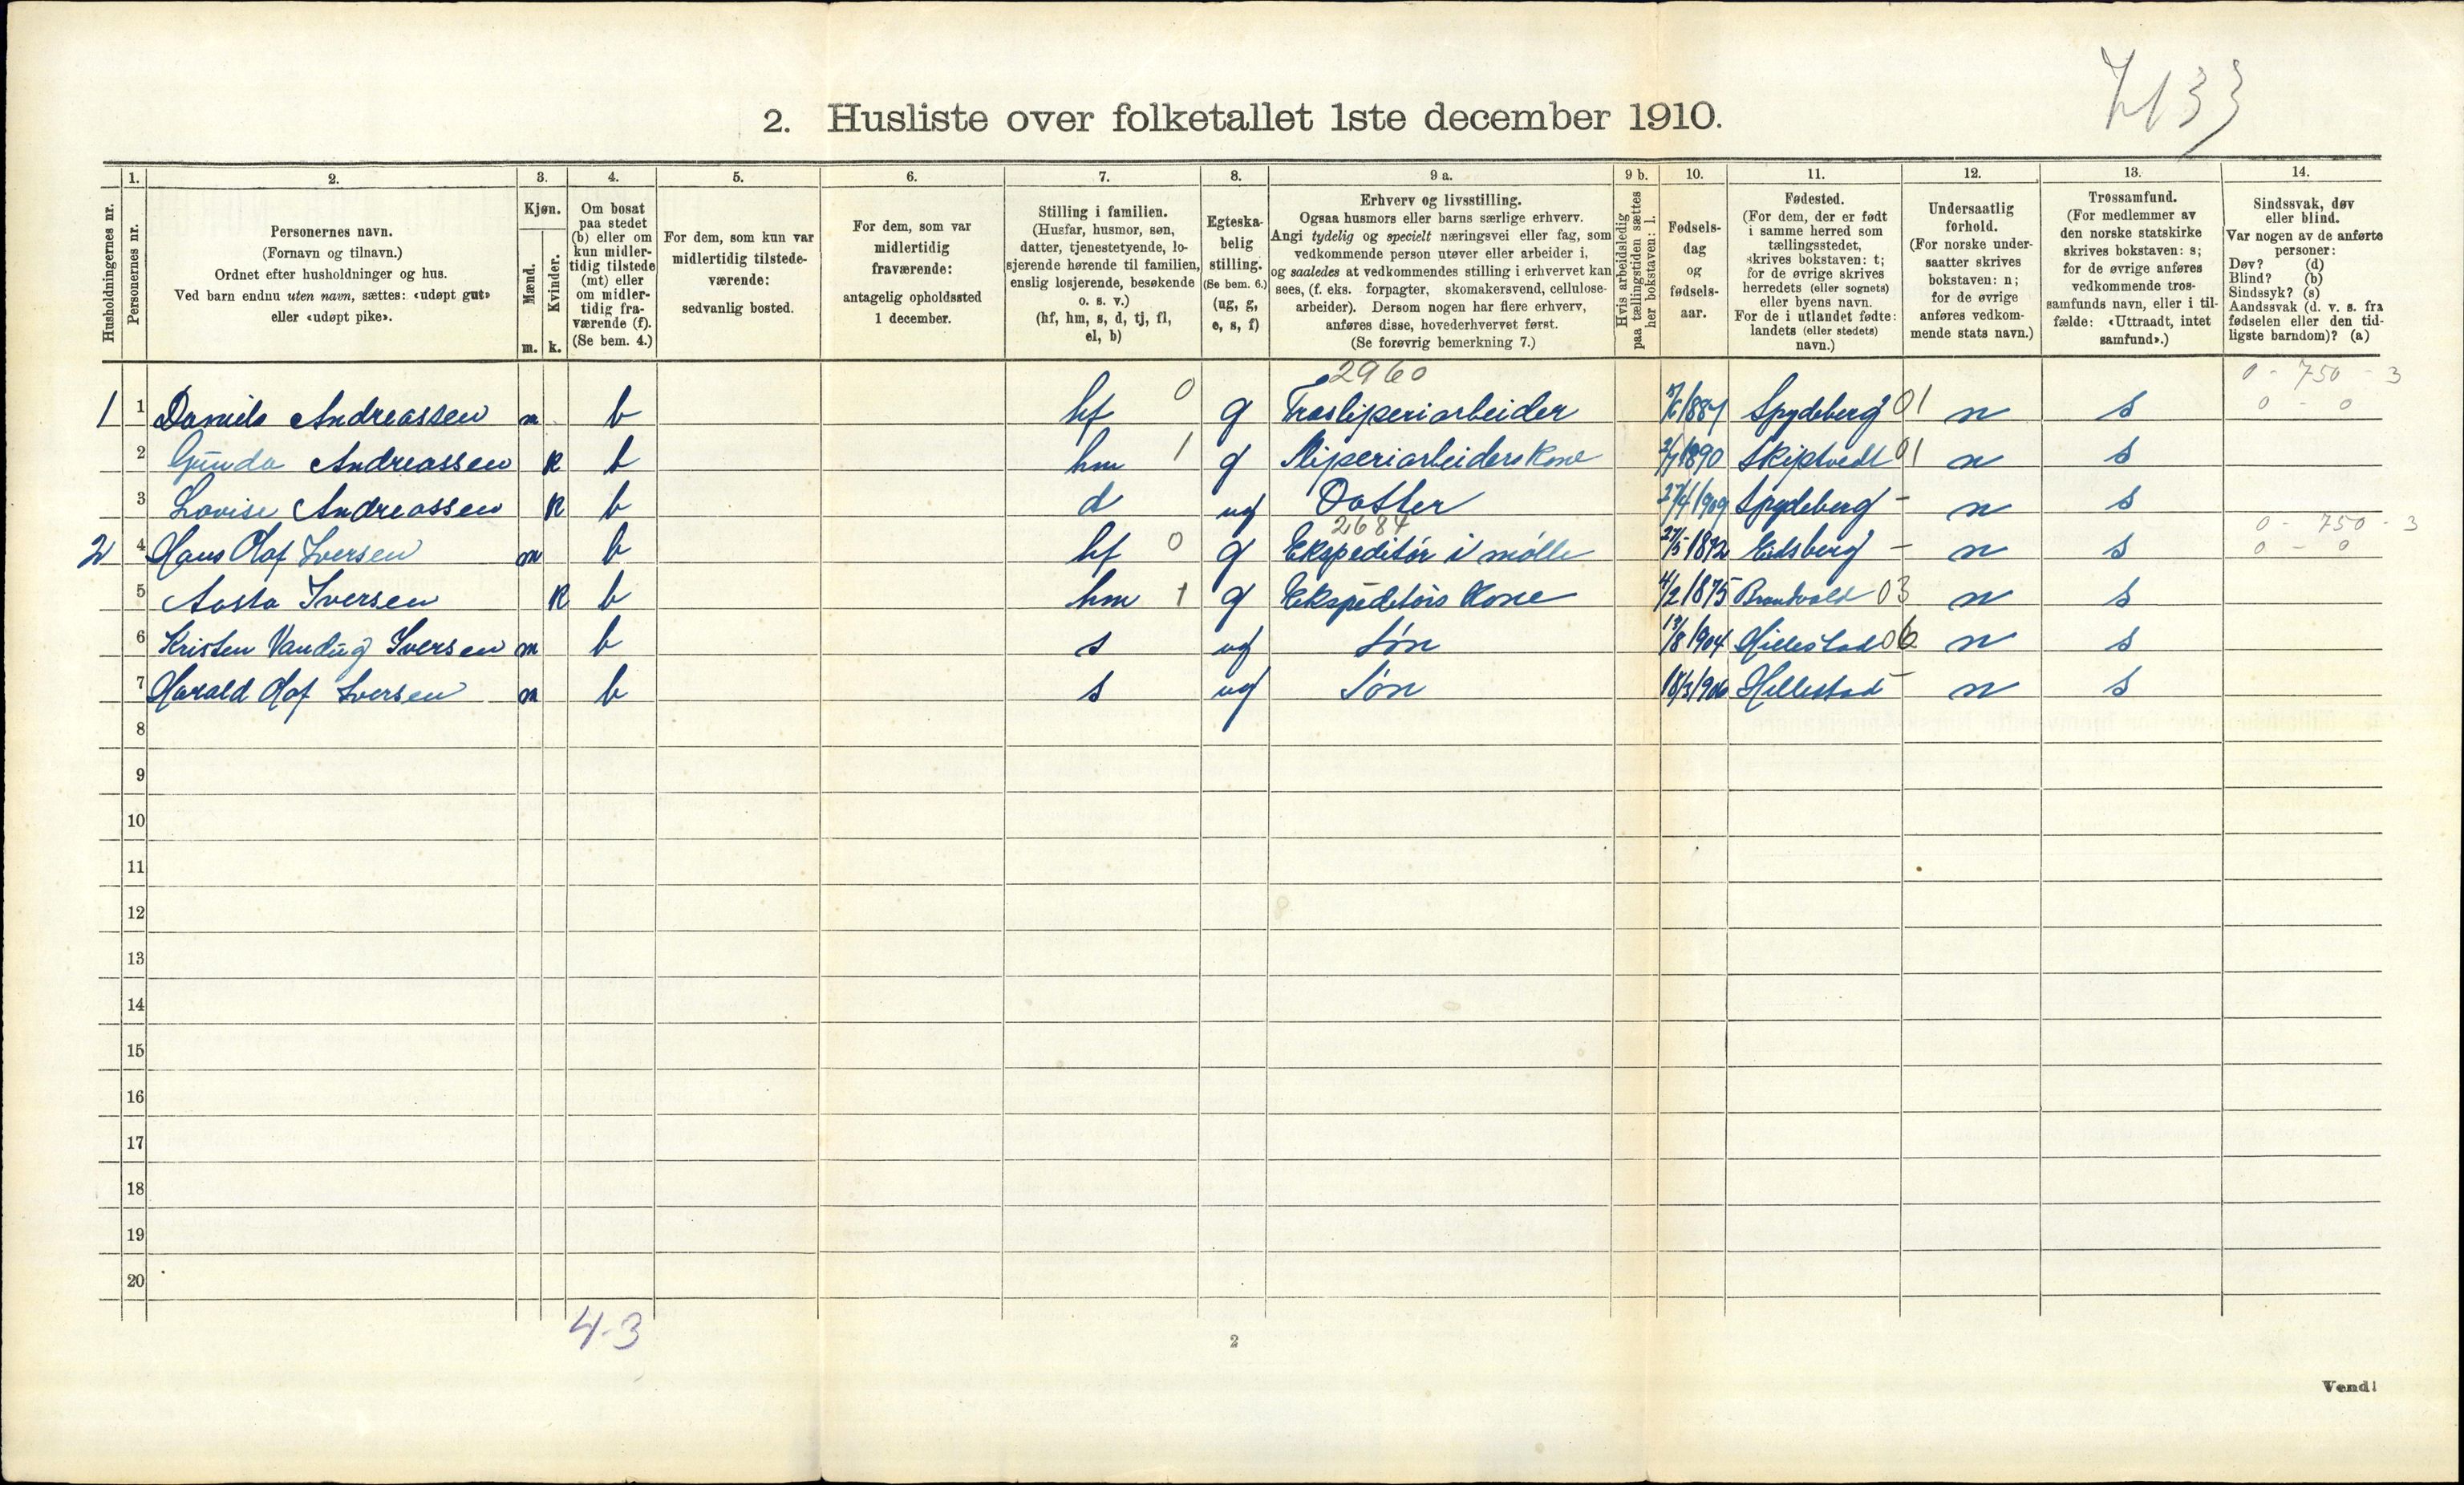 7133
2. Husliste over folketallet 1ste december 1910.
1. 2. 3. 4. 5. 6. 7. 8. 9 a. 9 b. 10. 11. 12. 13. 14.
Husholdningernes nr.
Personernes nr.
Personernes navn.
(Fornavn og tilnavn.)
Ordnet efter husholdninger og hus.
Ved barn endnu uten navn, sættes: «udøpt gut»
eller «udøpt pike».
Kjøn.
Mænd.
Kvinder.
m. k.
Om bosat
paa stedet
(b) eller om
kun midler-
tidig tilstede
(mt) eller
om midler-
tidig fra-
værende (f).
(Se bem. 4.)
For dem, som kun var
midlertidig tilstede-
værende:
sedvanlig bosted.
For dem, som var
midlertidig
fraværende:
antagelig opholdssted
1 december.
Stilling i familien.
(Husfar, husmor, søn,
datter, tjenestetyende, lo-
sjerende hørende til familien,
enslig losjerende, besøkende
o. s. v.)
(hf, hm, s, d, tj, fl,
el, b)
Egteska-
belig
stilling.
(Se bem. 6.)
(ug, g,
e, s, f)
Erhverv og livsstilling.
Ogsaa husmors eller barns særlige erhverv.
Angi tydelig og specielt næringsvei eller fag, som
vedkommende person utøver eller arbeider i,
og saaledes at vedkommendes stilling i erhvervet kan
sees, (f. eks. forpagter, skomakersvend, cellulose-
arbeider). Dersom nogen har flere erhverv,
anføres disse, hovederhvervet først.
(Se forøvrig bemerkning 7.)
Hvis arbeidsledig
paa tællingstiden sættes
her bokstaven: l.
Fødsels-
dag
og
fødsels-
aar.
Fødested.
(For dem, der er født
i samme herred som
tællingsstedet,
skrives bokstaven: t;
for de øvrige skrives
herredets (eller sognets)
eller byens navn.
For de i utlandet fødte:
landets (eller stedets)
navn.)
Undersaatlig
forhold.
(For norske under-
saatter skrives
bokstaven: n;
for de øvrige
anføres vedkom-
mende stats navn.)
Trossamfund.
(For medlemmer av
den norske statskirke
skrives bokstaven: s;
for de øvrige anføres
vedkommende tros-
samfunds navn, eller i til-
fælde: «Uttraadt, intet
samfund».)
Sindssvak, døv
eller blind.
Var nogen av de anførte
personer:
Døv? (d)
Blind? (b)
Sindssyk? (s)
Aandssvak (d. v. s. fra
fødselen eller den tid-
ligste barndom)? (a)
2960 0 - 750 - 3
1 1 Andreassen m b hf 0 g Træsliperiarbeider Spydeberg 01 n s 0 - 0
2 Gunda Andreassen k b hm 1 g Sliperiarbeiders kone 1890 Skiptvedt 01 n s
3 Lovise Andreassen k b d ug Datter 27/4 1909 Spydeberg - n s
2684 0 - 750 - 3
2 4 Hans Olaf Iversen m b hf 0 g Ekspeditør i mølle Eidsberg - n s 0 - 0
5 Aasta Iversen k b hm 1 g Ekspeditørs Kone 4/2 1875 Brandvold 03 n s
6 Kristen Iversen m b s ug Søn 13/8 1904 Hillestad 06 n s
7 Harald Olaf Iversen m b s ug Søn 18/3 1906 Hillestad - n s
8
9
10
11
12
13
14
15
16
17
18
19
20
4-3
2
Vend!